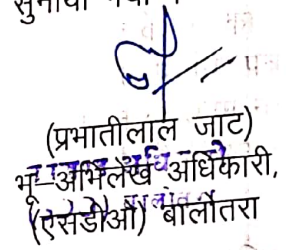 सुनाया गया
(प्रभातीलाल जाट)
भू-अभिलेख अधिकारी,
(एसडीओ) बालोतरा